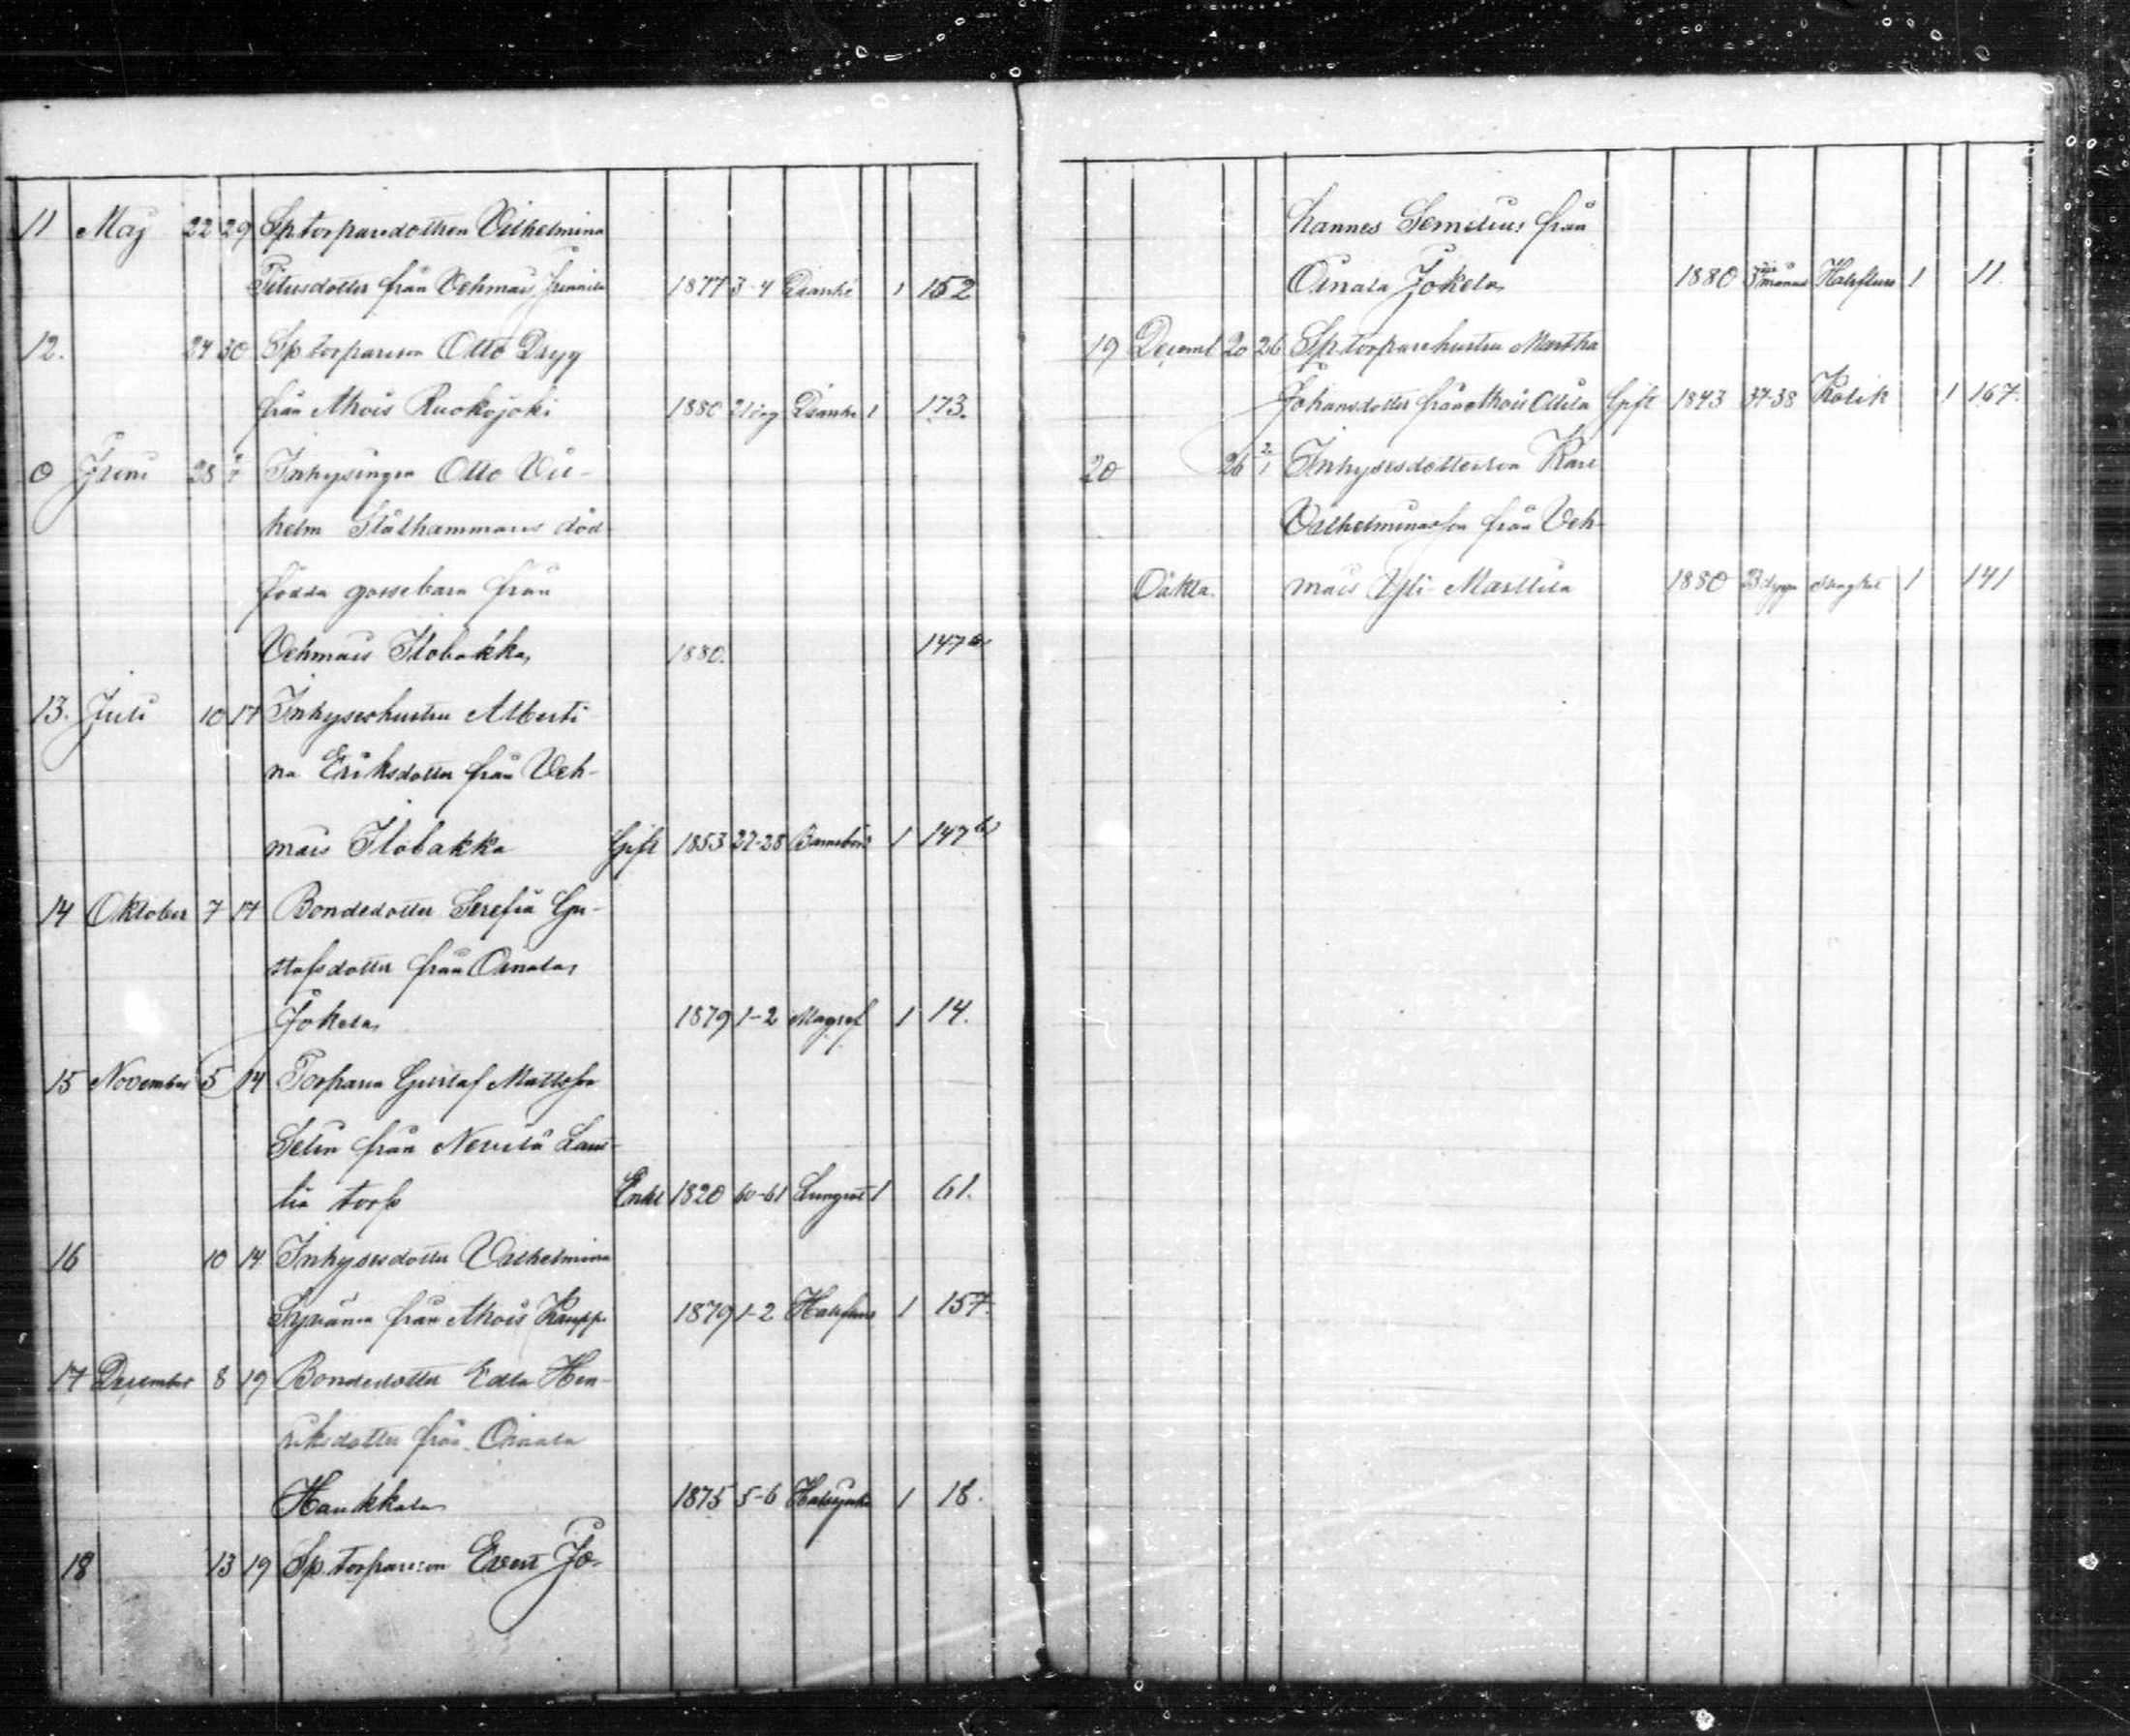 11 Maj 22 29 Sp torparedottren Vilhelmina
Titusdotter från Vehmais 1877 3-4 1 152
12. 24 30 Sp torpareson Otto Dryg
från Ahois Ruokojoki 1880 1 173.
0 Juni 28 Inhysingen Otto Vil-
helm Stålhammars död
födda gossebarn från
Vehmais Ilobakka 1880. 147
13. Juli 10 17 Inhyseshustru Alberti-
na Eriksdotter från Veh-
mais Ilobakka Gift 1853 27-28 Barnsbörd 1 147
14 Oktober 7 17 Bondedotter Serefia Gu-
stafsdotter från Oinala
Jokela 1879 1-2 Magref 1 14.
15 November 5 14 Torparen Gustaf Mattsson
Selin från
torp Enkl 1820 60-61 Lungsot 1 61.
16 10 14 Inhysesdotter Vilhelmina
från Ahois Kauppi 1879 1-2 Halsfluss 1 157.
17 December 8 19 Bondedotter Edla Hen-
riksdotter från Oinala
Haukkala 1875 5-6 1 18.
18 13 19 Sp torpareson Evert Jo-
hannes Semelius från
Oinala Jokela 1880 Halsfluss 1 11.
19 Decemb 20 26 Sp. torparehustru Martha
Johansdotter från Ahois Ollila Gift 1843 37-38 Kolik 1 167.
20 26 2/1 Inhysesdotterson Karl
Vilhelminasson från Veh-
mais Yli-Marttila 1880 1 141